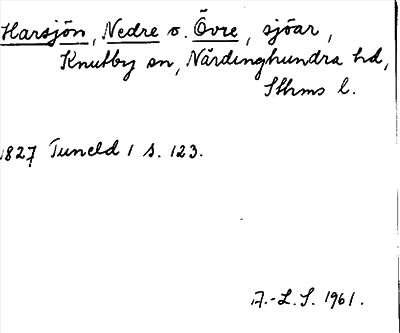 Harsjön, Nedre o. Övre, sjöar,
Knutby sn, Närdinghundra hd,
Sthms l.
1827 Tuneld 1 s. 123.
A.-L. S. 1961.